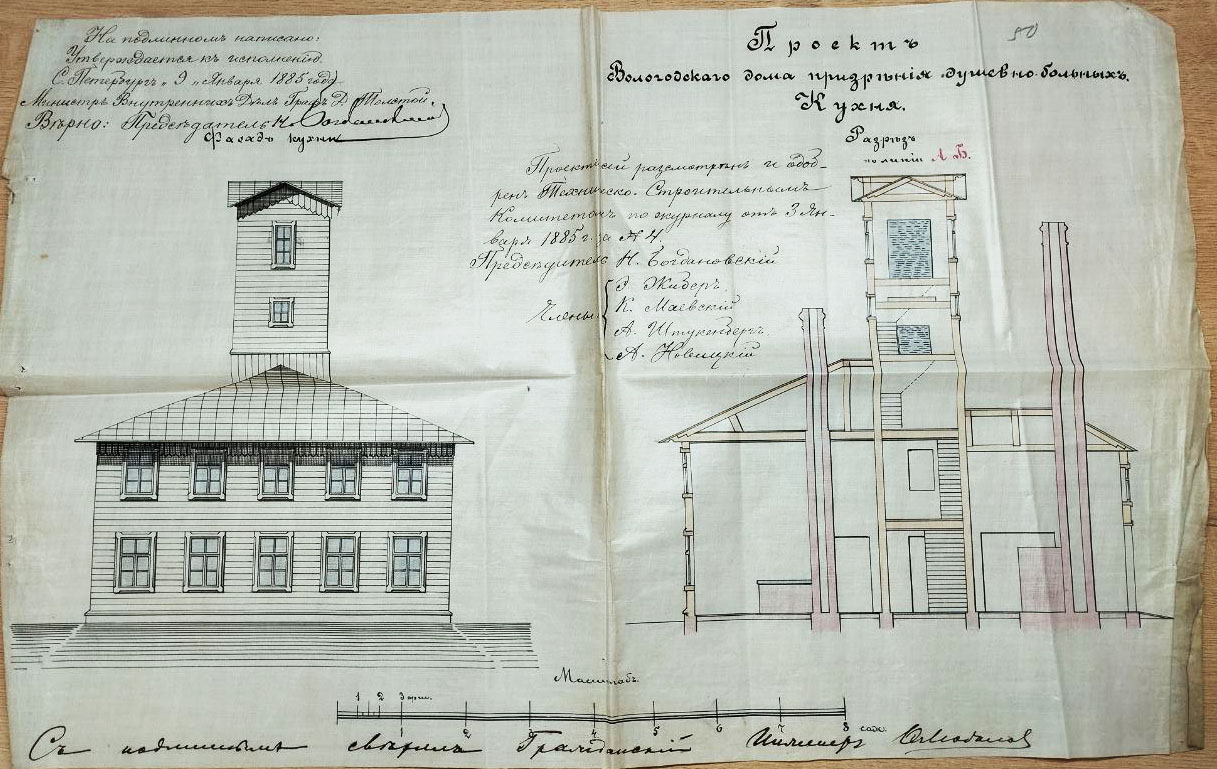 На подлинномъ написано:
Утверждается къ исполненію.
С. Петербургъ „9„ Января 1885 году
Министръ Внутреннихъ Дѣлъ Графъ Д. Толстой.
Вѣрно: Предсѣдатель Н. Богдановскій
Фасадъ кухни
50
Проектъ
Вологодскаго дома призрѣнія душевно-больныхъ.
Кухня.
Разрѣзъ
по линіи А Б.
Проектъ сей разсмотрѣнъ и одоб-
ренъ Техническо-Строительнымъ
Комитетомъ по журналу отъ 3 Ян-
варя 1885 года № 4.
Предсѣдатель Н. Богдановскій
Члены
Э. Жиберъ.
К. Маевскій
А. Штукенберъ
А. Новицкій
Масштабъ.
1 2 3 арш.
1 2 3 4 5 6 7 8 саж.
Съ подлиннымъ свѣрилъ Гражданскій Инженеръ